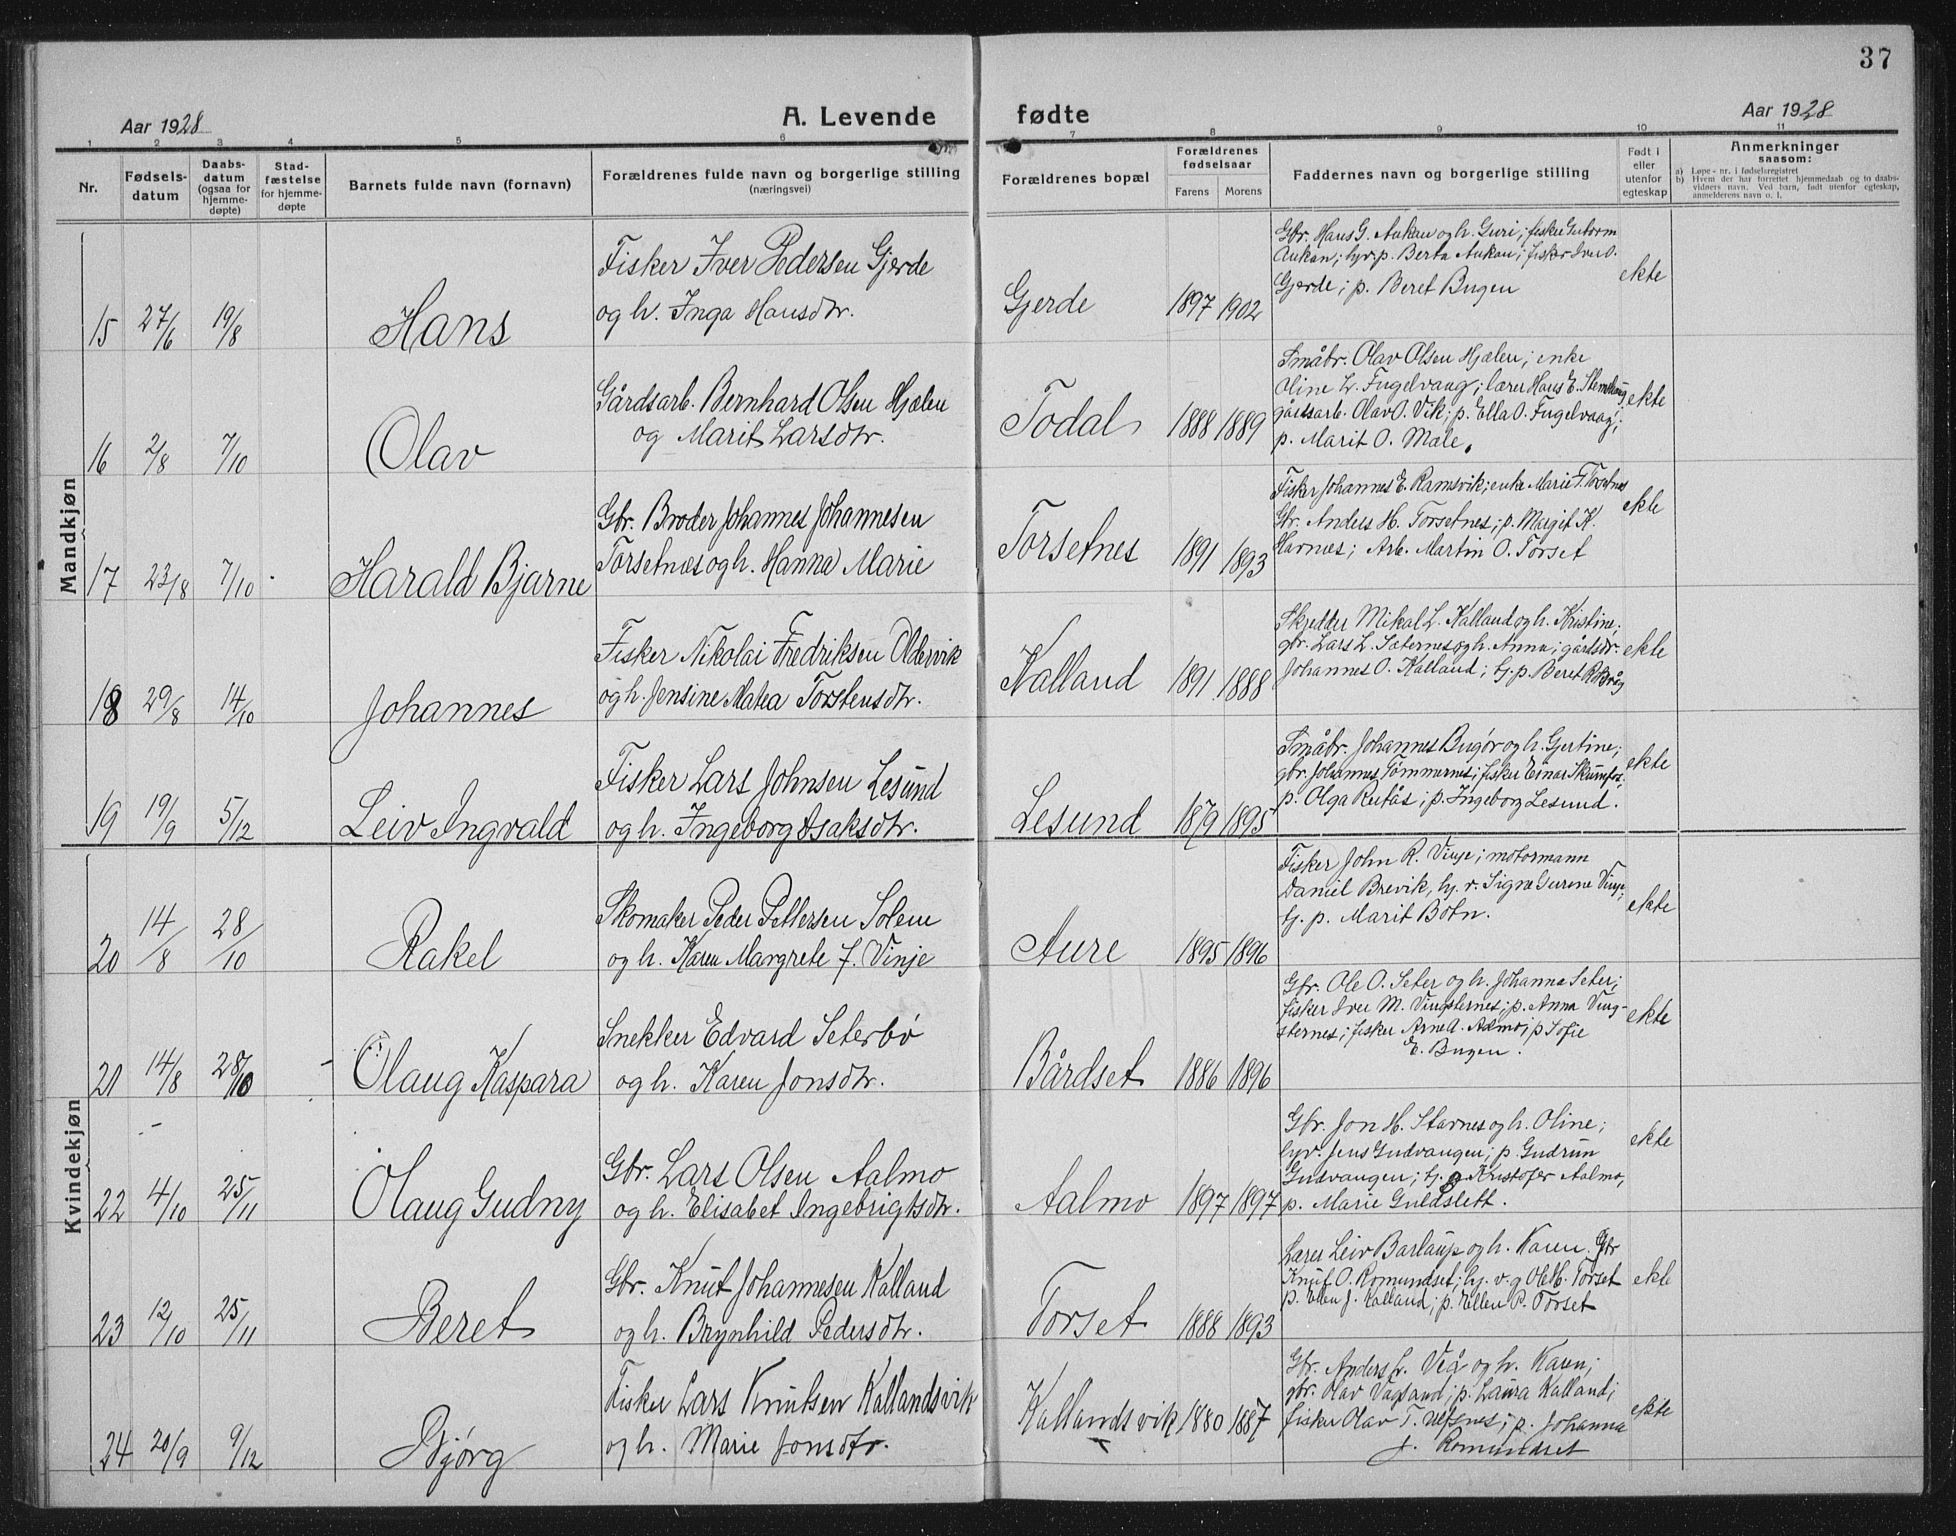 37
Aar 1928
A. Levende
fødte
Aar 1928
1 2 3 4 5 6 7 8 9 10 11
Nr.
Fødsels-
datum
Daabs-
datum
(ogsaa for
hjemme-
døpte)
Stad-
fæstelse
for hjemme-
døpte
Barnets fulde navn (fornavn)
Forældrenes fulde navn og borgerlige stilling
(næringsvei)
Forældrenes bopæl
Forældrenes
fødselsaar
Farens Morens
Faddernes navn og borgerlige stilling
Født i
eller
utenfor
egteskap
Anmerkninger
saasom:
a) Løpe-nr. i fødselsregistret
b) Hvem der har forrettet hjemmedaab og to daabs-
vidners navn. Ved barn, født utenfor egteskap,
anmelderens navn o. l.
Mandkjøn
15 27/6 19/8 Hans
Fisker Iver Pedersen Gjerde
og h. Inga Hansdtr.
Gjerde 1897 1902
Gbr. Hans G. Aukan og h. Guri; fisker Guttorm
Aukan; hv. p. Berta Aukan; fisker Iver O.
Gjerde; p. Beret Bugen
ekte
16 2/8 7/10 Olav
Gårdsarb. Bernhard Olsen Hjælen
og Marit Larsdtr.
Todal 1888 1889
Småbr. Olav Olsen Hjælen; enke
Oline L. Fugelvaag; lærer Hans E.
gårdsarb. Olav O. Vik; p. Ella O. Fugelvaag;
p. Marit O. Mæle.
ekte
17 23/8 7/10 Harald Bjarne
Gbr. Broder Johannes Johannesen
Torsetnæs og h. Hanna Marie
Torsetnes 1891 1893
Fisker Johannes E. Ramsvik; enke Marie F. Torsetnes
Gbr. Anders H. Torsetnes; p. Margit K.
Harnes; Arb. Martin O. Torset
ekte
18 29/8 14/10 Johannes
Fisker Nikolai Fredriksen Oldervik
og h. Jensine Matea Torstensdtr.
Kalland 1891 1888
Skredder Mikal L. Kalland og h. Kristine;
gbr. Lars L. Sæternes og h. Anna; gårdbr.
Johannes O. Kalland; hj. p. Beret
ekte
19 19/9 5/12 Leiv Ingvald
Fisker Lars Johnsen Lesund
og h. Ingeborg Isaksdtr.
Lesund 1879 1895
Småbr. Johannes Bugør og h. Gjertine;
gbr. Johannes Tømmernes; fisker Einar Skumfos;
p. Olga Reitås; p. Ingeborg Lesund.
ekte
Kvindekjøn
20 14/8 28/10 Rakel
Skomaker Peder Pettersen Solem
og h. Karen Margrete f. Vinje
Aure 1895 1896
Fisker John R. Vinje; motormann
Daniel Brevik, hj. v. Signe Gurene Vinje;
hj. p. Marit Botn.
ekte
21 14/8 28/10 Olaug Kaspara
Snekker Edvard Seterbø
og h. Karen Jonsdtr.
Bårdset 1886 1896
Gbr. Ole O. Seter og h. Johanna Seter;
fisker Iver M. Vingsternes; p. Anna Ving-
sternes; fisker Arne A. Aalmo; p Sofie
E. Bugen.
ekte
22 4/10 25/11 Olaug Gudny
Gbr. Lars Olsen Aalmo
og h. Elisabet Ingebrigtsdtr.
Aalmo 1897 1897
Gbr. Jon H. Stavnes og h. Oline;
hjv. Jens Gudvangen; p. Gudrun
Gudvangen; hj. g Kristofer Aalmo,
p. Marie Guldslett.
ekte
23 12/10 25/11 Beret
Gbr. Knut Johannesen Kalland
og h. Brynhild Pedersdtr.
Torset 1888 1893
Lærer Leiv Barlaup og h. Karen. Gbr
Knut O. Romundset; hj. v. g Ole H. Torset
p. Ellen J. Kalland; p. Ellen P. Torset
ekte
24 20/9 9/12 Bjørg
Fisker Lars Knutsen Kallandsvik
og h. Marie Jonsdtr.
Kallandsvik 1880 1887
Gbr. Anders L. Veg og h. Karen;
gbr. Olav Vagsand; p. Laura Kalland;
fisker Olav T. Ulfsnes; p. Johanna
J. Romundset
ekte